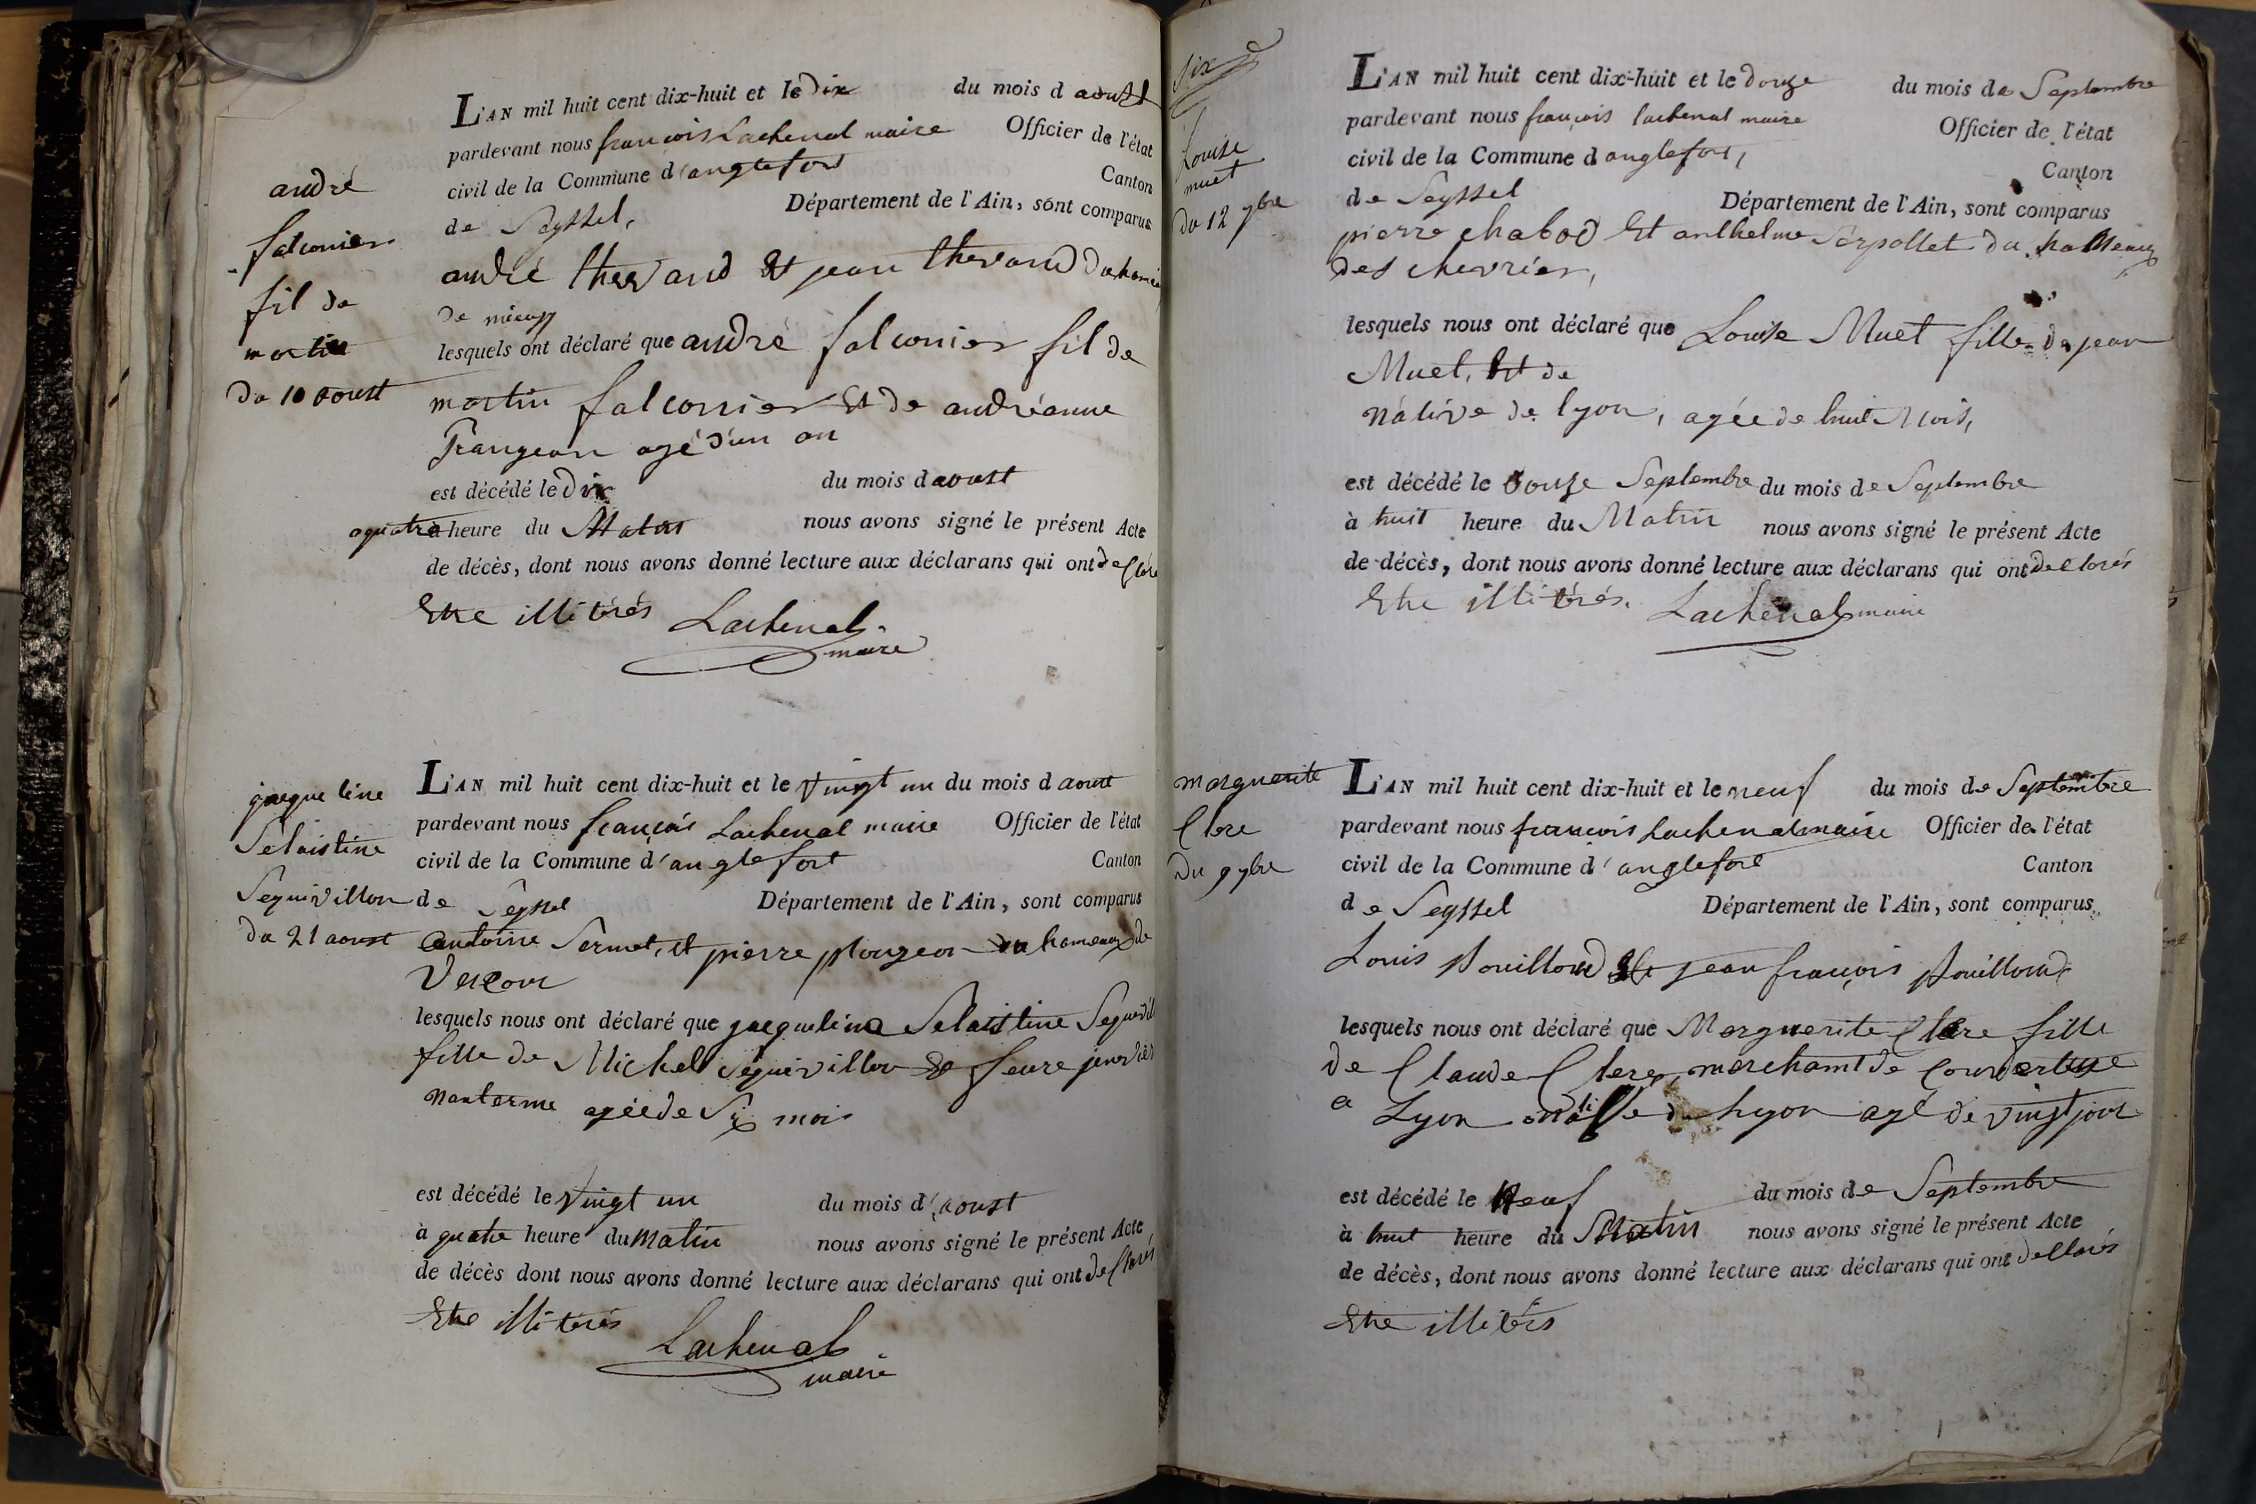 andré
falconier
fil de
martin
du 10 aoust
L'AN mil huit cent dix-huit et le dix du mois d aoust
pardevant nous françois Lachenal maire Officier de l'état
civil de la Commune d'anglefort Canton
de Seyssel, Département de l'Ain, sont comparus
andré thevand Et jean thevand du
de mieux
lesquels ont déclaré que andré falconier fil de
martin falconier Et de andréanne
Frangeon agé d'un an
est décédé le dix du mois d aoust
a quatre heure du Matin nous avons signé le présent Acte
de décès, dont nous avons donné lecture aux déclarans qui ont declaré
Etre illitérés Lachenal
maire
jacqueline
Selaistine
Sequivillon
du 21 aoust
L'AN mil huit cent dix-huit et le vingt un du mois d aoust
pardevant nous françois Lachenal maire Officier de l'état
civil de la Commune d'anglefort Canton
de Seyssel Département de l'Ain, sont comparus
antoine Sermet, et pierre plougeon du hameaux de
lesquels nous ont déclaré que jacquelina Selaistine
fille de Michel Sequivillon
agéede Six mois
est décédé le vingt un du mois d'aoust
à quatre heure du matin nous avons signé le présent Acte
de décès dont nous avons donné lecture aux déclarans qui ont declarés
Etre illitérés
Lachenal
maire
six
Louise
muet
du 12 7bre
L'AN mil huit cent dix-huit et le douze du mois de Septembre
pardevant nous françois lachenal maire Officier de l'état
civil de la Commune d anglefort, Canton
de Seyssel Département de l'Ain, sont comparus
pierre chabod Et anthelme Serpollet du
des chevrier,
lesquels nous ont déclaré que Louise Muet fille de jean
Muet, Et de
nátive de lyon, agée de huit Mois,
est décédé le douze Septembre du mois de Septembre
à huit heure du Matin nous avons signé le présent Acte
de décès, dont nous avons donné lecture aux déclarans qui ont declarés
Etre illitérés. Lachenal maire
marguerite
Clere
du 9 7bre
L'AN mil huit cent dix-huit et le neuf du mois de Septembre
pardevant nous françois Lachenal maire Officier de l'état
civil de la Commune d'anglefort Canton
de Seyssel Département de l'Ain, sont comparus
Louis pouilloud Et jean françois pouilloud
lesquels nous ont déclaré que Marguerite Clere fille
de Claude Clere, marchamt de Couverture
a Lyon native de Lyon agé de vingt jour
est décédé le Neuf du mois de Septembre
à huit heure du Matin nous avons signé le présent Acte
de décès, dont nous avons donné lecture aux déclarans qui ont declarés
Etre illitérés